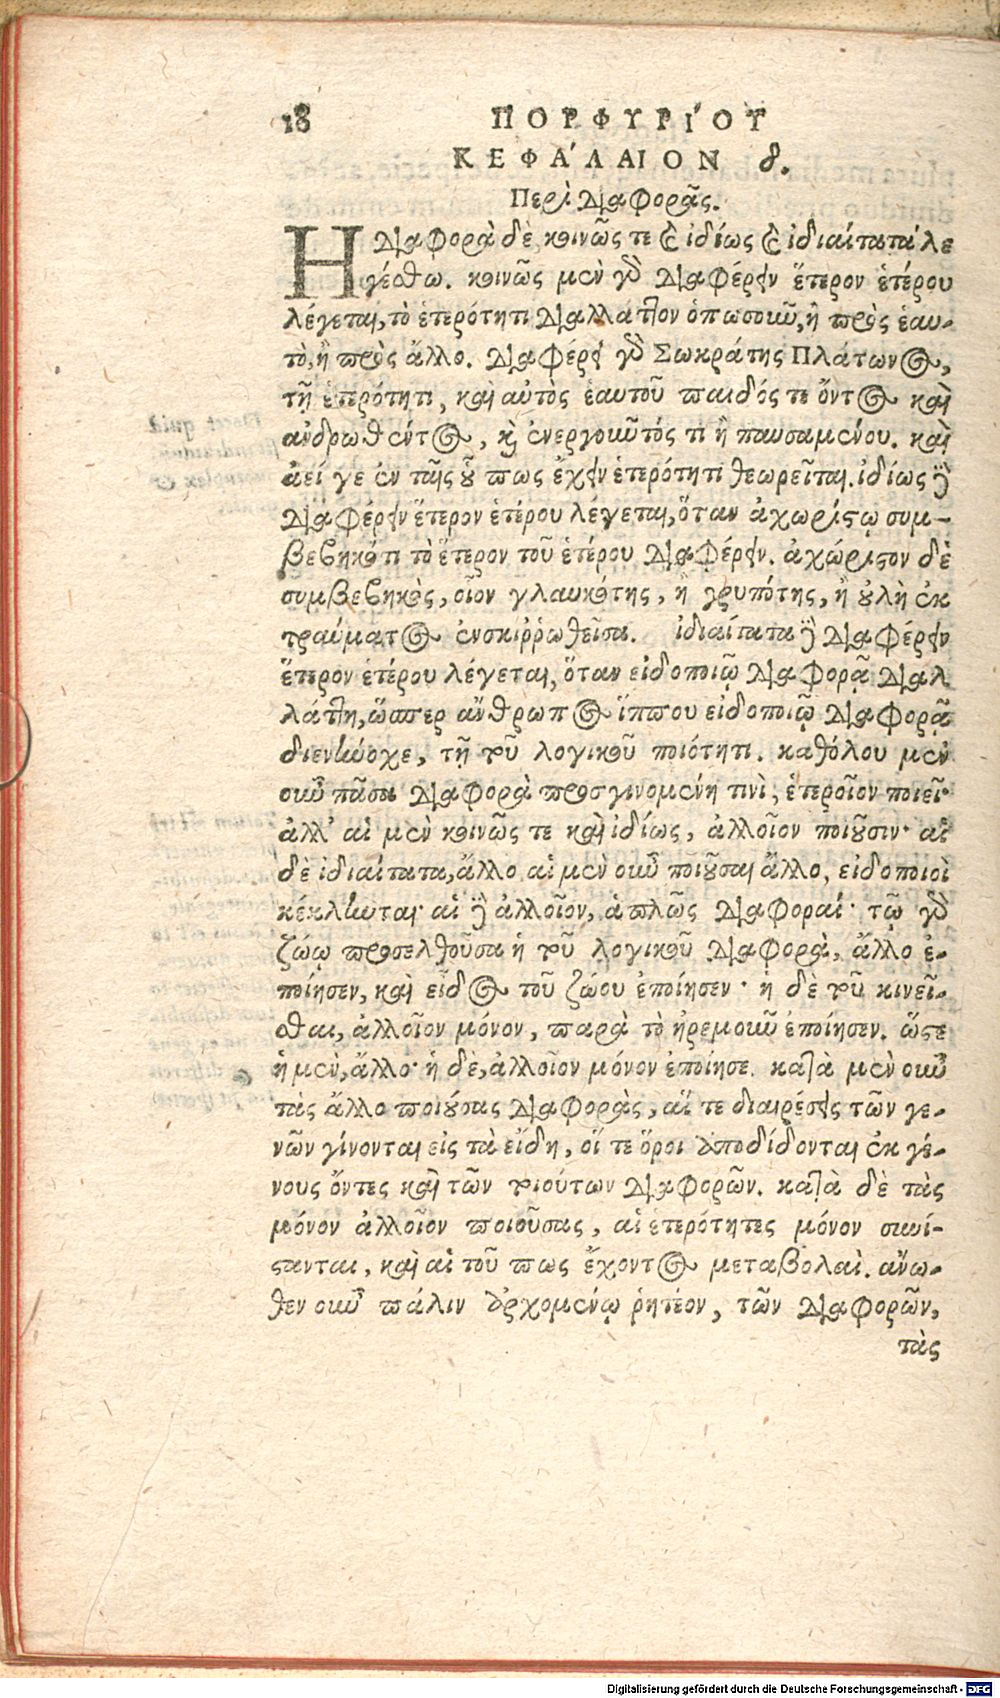 18 ΠΟΡΦΥΡΙ´ΟΥ
ΚΕΦΑ´ΛΑΙΟΝ δ.
Περὶ διαφορᾶς.
Η Διαφορὰ δὲ κοινῶς τε καὶ ἰδίως καὶ ἰδιαίτατα λε
γέσθω. κοινῶς μὲν γὸ διαφέρειν ἕτερον ἑτέρου
λέγεται, τὸ ἑτερότητι διαλλάττον ὁπωσοιοῦν, ἢ πρὸς ἑαυ-
τὸ, ἢ πρὸς ἄλλο. διαφέρει γὸ Σωκράτης Πλάτωνος,
τῇ ἑτερότητι, καὶ αὐτὸς ἑαυτοῦ παιδός τε ὄντος καὶ
ἀνδρωθέντος, καὶ ἐνεργοιοῦτός τι ἢ παυσαμένου. καὶ
ἀεί γε ἐν ταῖς τοῦ πως ἔχειν ἑτερότητι θεωρεῖται. ἰδίως δὲ
διαφέρειν ἕτερον ἑτέρου λέγεται, ὅταν ἀχωρίστῳ συμ-
βεβηκότι τὸ ἕτερον τοῦ ἑτέρου διαφέρειν. ἀχώριστον δὲ
συμβεβηκὸς, οἷον γλαυκότης, ἢ γρυπότης, ἢ οὐλὴ ἐκ
τραύματος ἐνσκιῤῥωθεῖσα. ἰδιαίτατα δὲ διαφέρειν
ἕτερον ἑτέρου λέγεται, ὅταν εἰδοποιῷ διαφορᾷ διαλ
λάττῃ, ὥσπερ ἄνθρωπος ἵππου εἰδοποιῷ διαφορᾷ
διενήνοχε, τῇ τοῦ λογικοῦ ποιότητι. καθόλου μὲν
οὖν πᾶσα διαφορὰ προσγινομένη τινὶ, ἑτεροῖον ποιεῖ·
ἀλλ' αἱ μὲν κοινῶς τε καὶ ἰδίως, ἀλλοῖον ποιοῦσιν· αἱ
δὲ ἰδιαίτατα, ἄλλο. αἱ μὲν οὖν ποιοῦσαι ἄλλο, εἰδοποιοὶ
κέκληνται· αἱ δὲ ἀλλοῖον, ἁπλῶς διαφοραί· τῷ γὸ
ζώῳ προσελθοῦσα ἡ τοῦ λογικοῦ διαφορὰ, ἄλλο ἐ-
ποίησεν, καὶ εἶδος τοῦ ζώου ἐποίησεν· ἡ δὲ τοῦ κινεῖ-
σθαι, ἀλλοῖον μόνον, παρὰ τὸ ἠρεμοιοῦ ἐποίησεν. ὥστε
ἡ μὲν, ἄλλο· ἡ δὲ, ἀλλοῖον μόνον ἐποίησε. κατὰ μὲν οὖν
τὰς ἄλλο ποιούσας διαφορὰς, αἵ τε διαιρέσεις τῶν γε-
νῶν γίνονται εἰς τὰ εἴδη, οἵ τε ὅροι ἀποδίδονται ἐκ γέ-
νους ὄντες καὶ τῶν τοιούτων διαφορῶν. κατὰ δὲ τὰς
μόνον ἀλλοῖον ποιοῦσας, αἱ ἑτερότητες μόνον συνί-
στανται, καὶ αἱ τοῦ πως ἔχοντος μεταβολαὶ. ἄνω-
θεν οὖν πάλιν ἀρχομένῳ ῥητέον, τῶν διαφορῶν,
τὰς
Digitalisierung gefördert durch die Deutsche Forschungsgemeinschaft - DFG